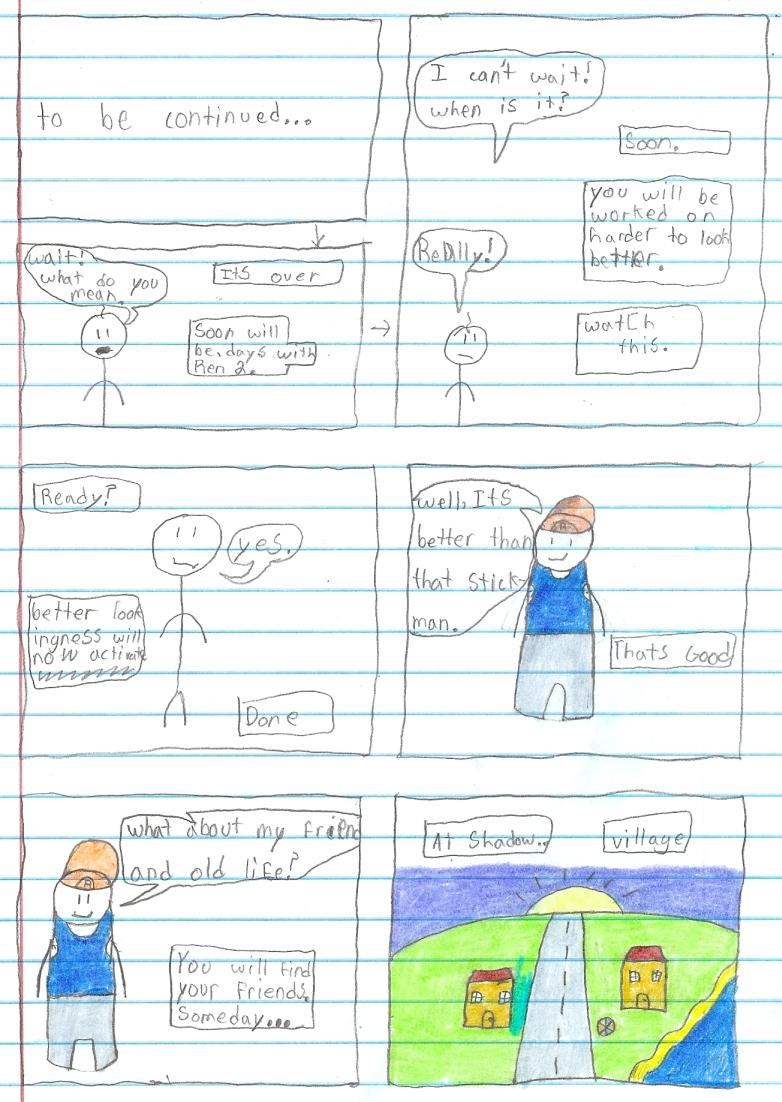 to be continued...
wait!
what do you
mean.
Its over
Soon will
be. days with
Ren 2.
I can't wait!
when is it?
Soon.
you will be
worked on
harder to look
better.
ReAlly!
watch
this.
Ready?
yes.
better look
ingness will
now activate
Done
well, Its
better than
that stick-
man.
Thats Good
what about my friend
and old life?
You will find
your friends
Someday...
At Shadow..
village